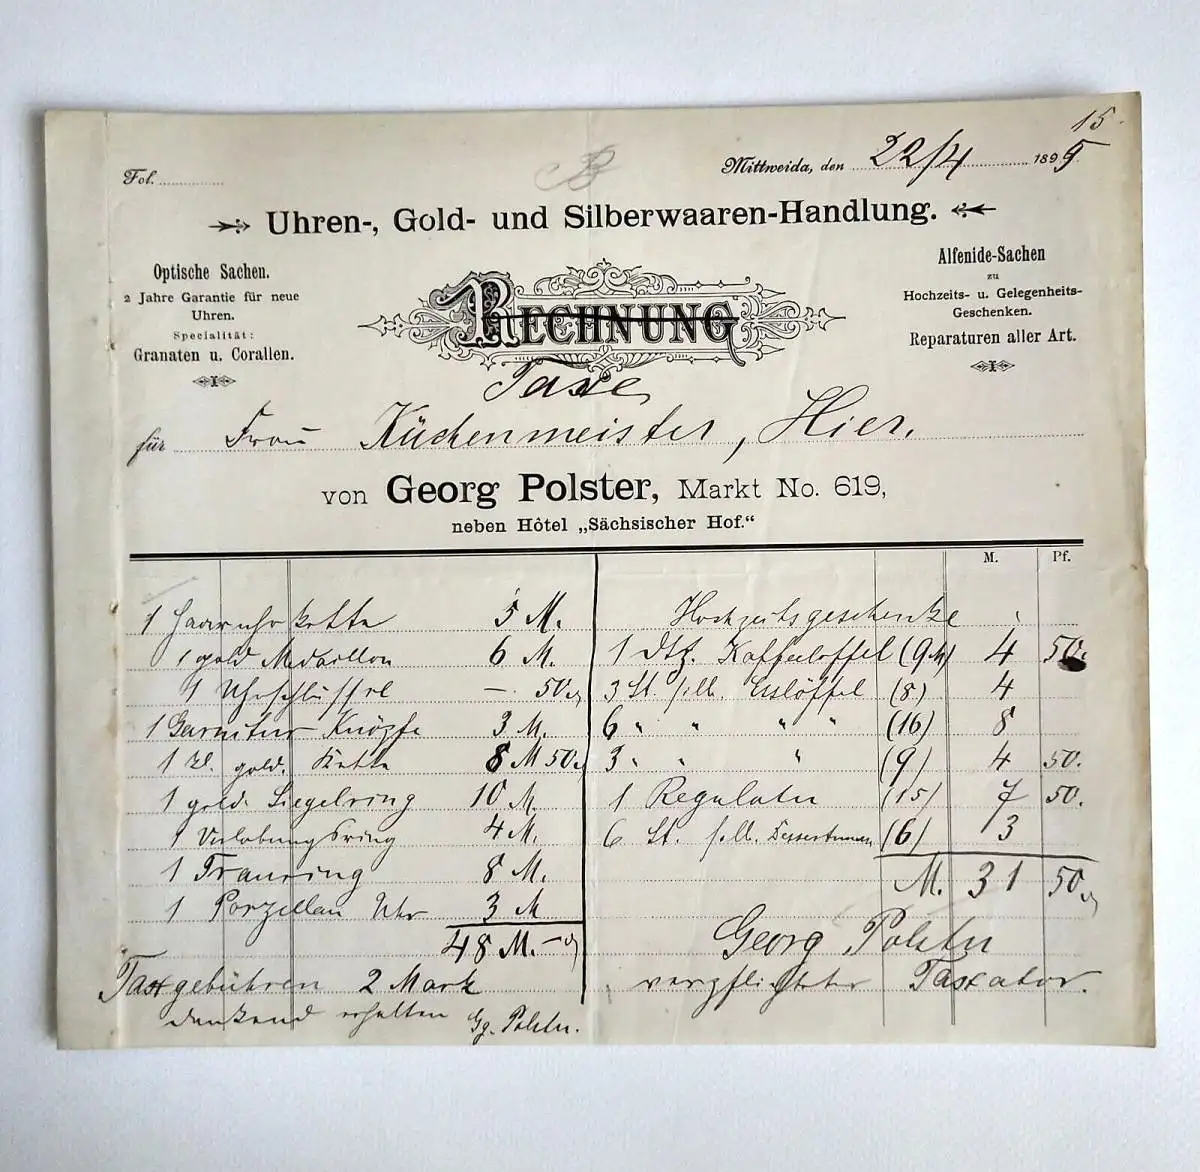 15
Fol.
Mittweida, den 22/4 1895
Uhren-, Gold- und Silberwaaren-Handlung.
Optische Sachen.
2 Jahre Garantie für neue
Uhren.
Specialität:
Granaten u. Corallen.
RECHNUNG
Alfenide-Sachen
zu
Hochzeits- u. Gelegenheits-
Geschenken.
Reparaturen aller Art.
Taxe
für Frau Küchenmeister, Hier.
von Georg Polster, Markt No. 619,
neben Hôtel „Sächsischer Hof.“
M. Pf.
1 Haaruhrkette 5 M.
1 gold Medaillon 6 M.
1 Uhrschlüssel —. 50
1 Garnitur Knöpfe 3 M.
1 kl. gold. Kette 8 M 50
1 gold. Siegelring 10 M.
1 Verlobungsring 4 M.
1 Trauring 8 M.
1 Porzellan Uhr 3 M
48 M. —
Taxgebühren 2 Mark
dankend erhalten Gg. Polster.
Hochzeitsgeschenke
1 Dtz. Kaffeelöffel 4 50
3 St. silb. Esslöffel (8) 4
6 " " " " (16) 8
3 " " " (9) 4 50.
1 Regulator (15) 7 50.
6 St. silb. (6) 3
M. 31 50
Georg Polster
verpflichteter Taxator.